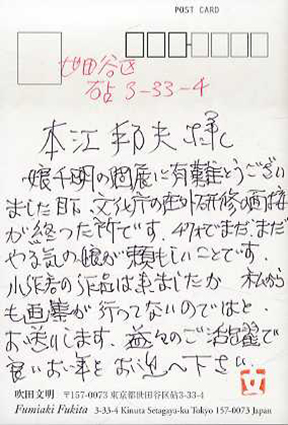 POST CARD
世田谷区
砧 3-33-4
本江邦夫様
娘千明の個展に有難とうござい
ました 目下、文化庁の在外研修の面接
が終った所です。47才でまだまだ
やる気の娘が頼もしいことです。
小作者の作品は来ましたか 私から
も画集が行ってないのではと、
お送りします。益々のご活躍で
良いお年をお迎へ下さい
吹田文明 〒157-0073 東京都世田谷区砧3-33-4
Fumiaki Fukita 3-33-4 Kinuta Setagaya-ku Tokyo 157-0073 Japan